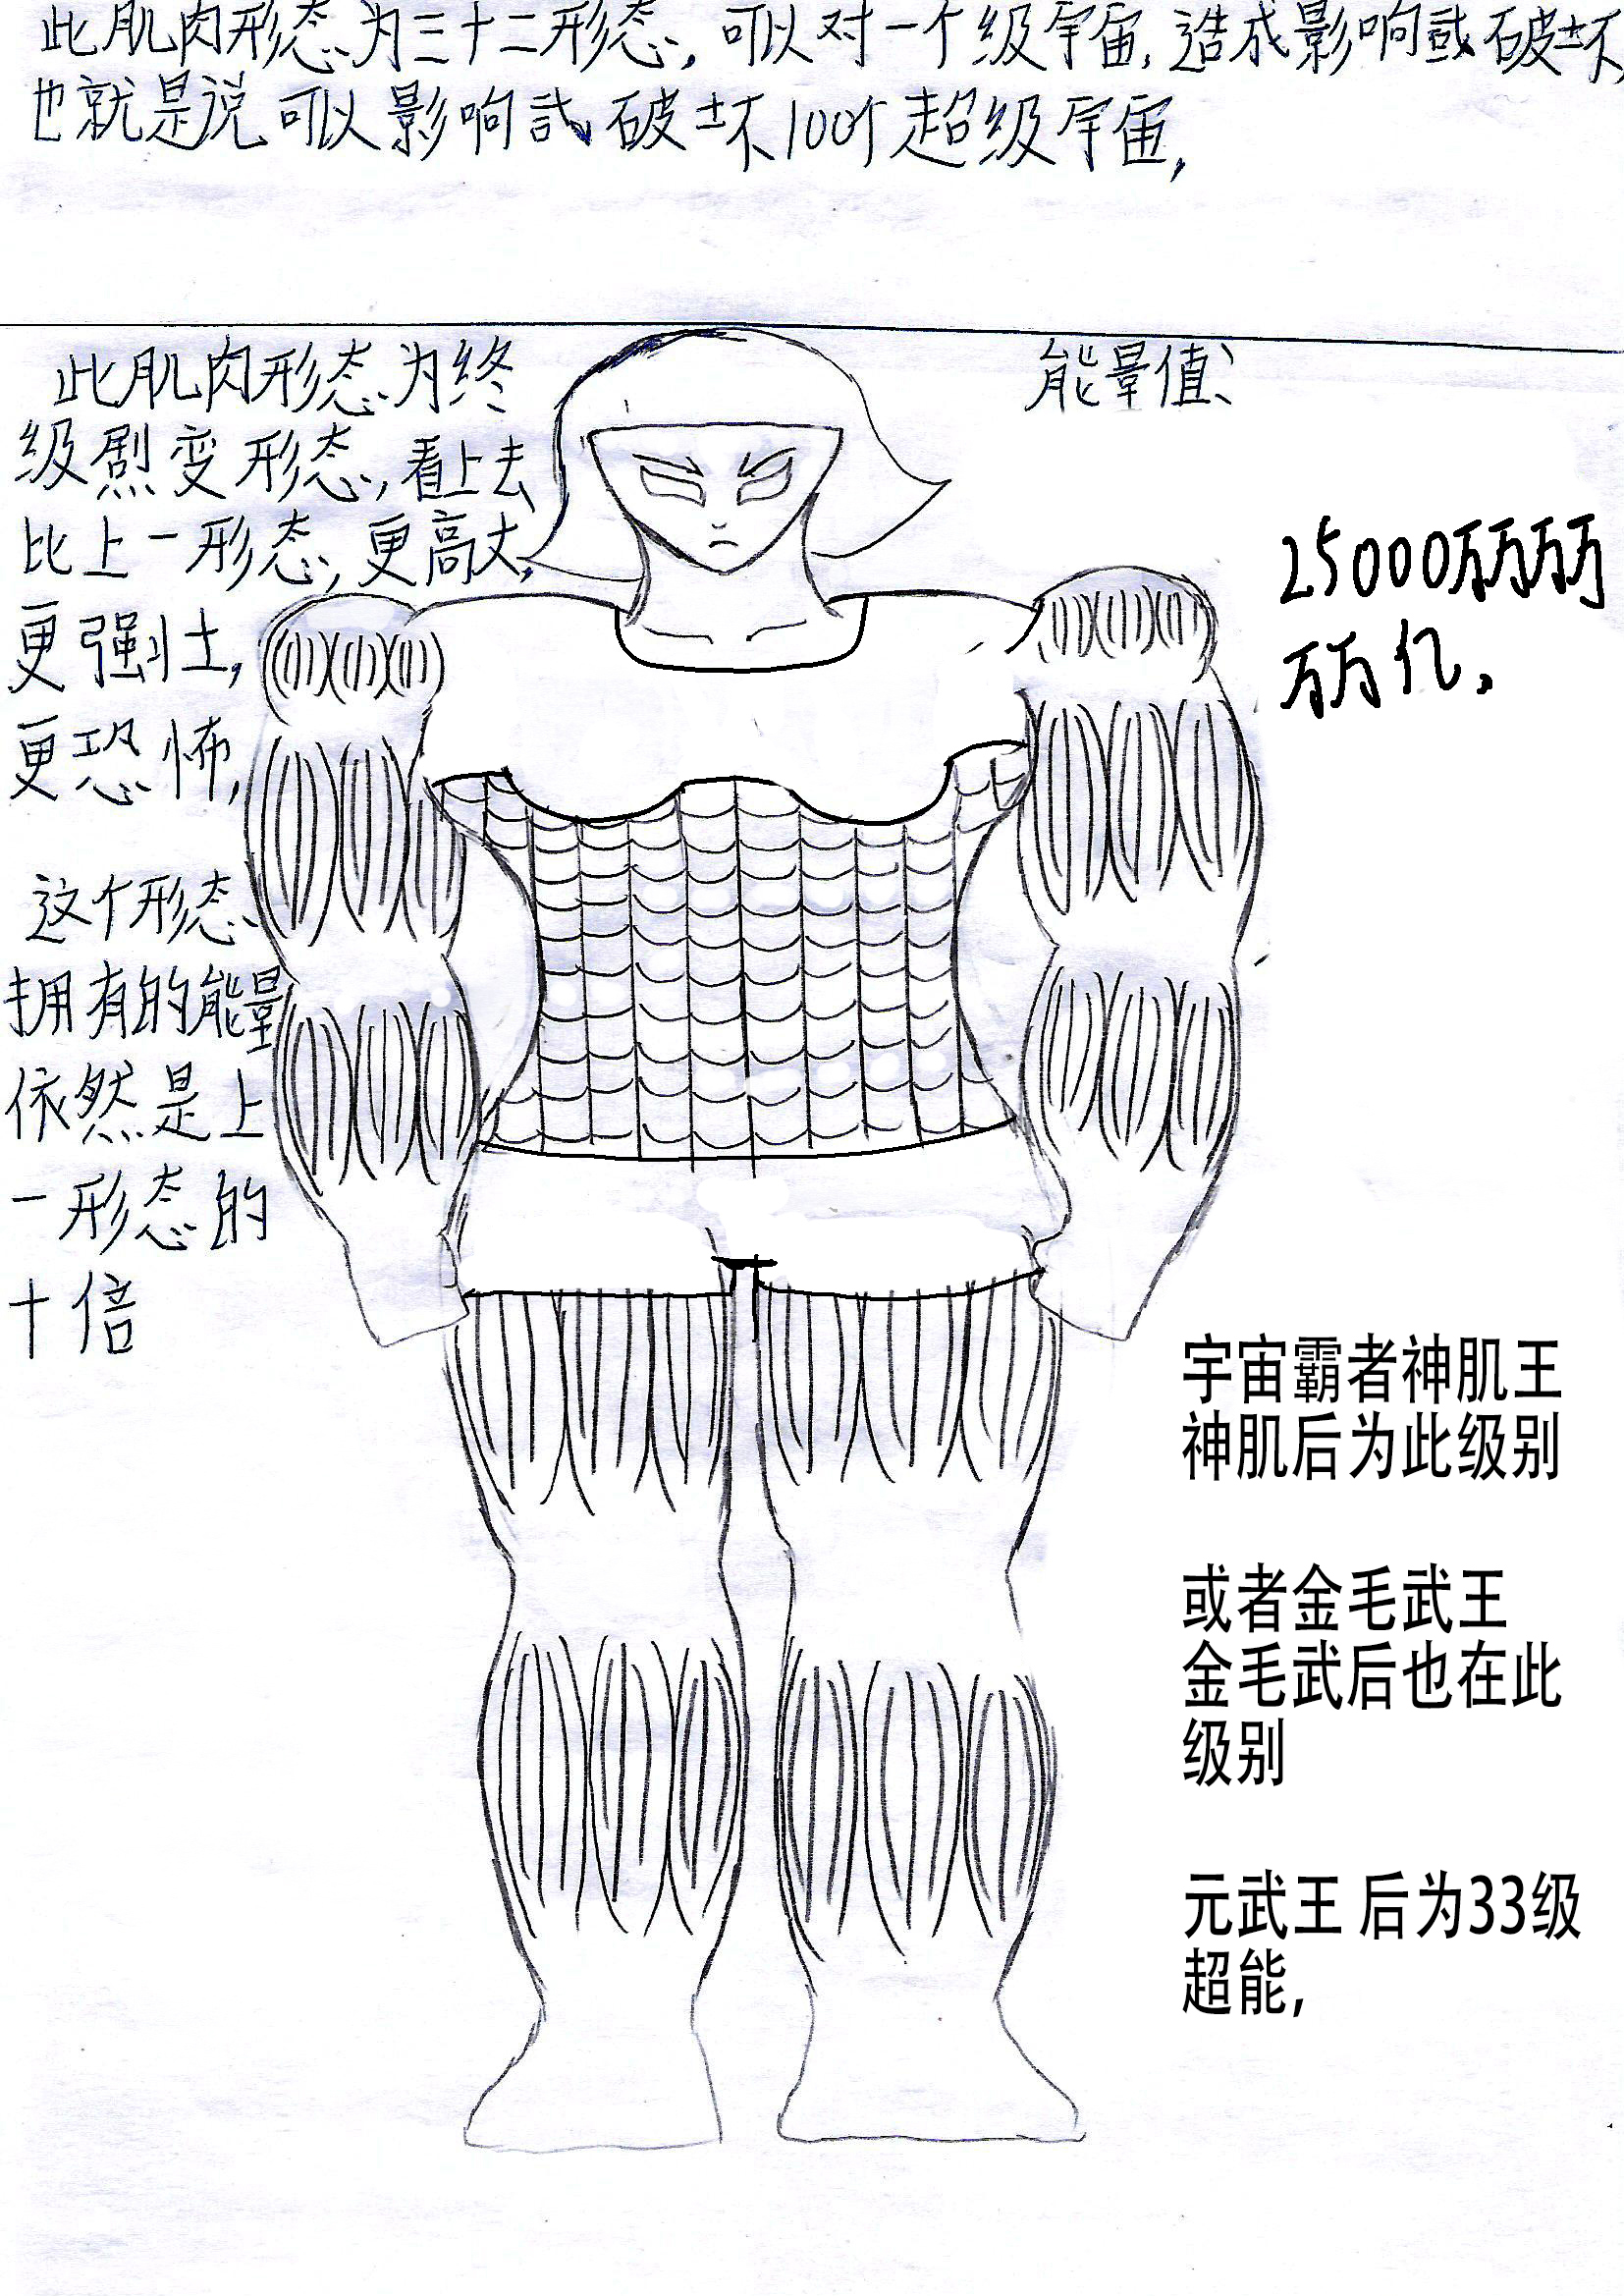 此肌肉形态为三十二形态，可以对一个级宇宙，造成影响或破坏
也就是说可以影响或破坏100个超级宇宙，
此肌肉形态为终
级剧变形态，看上去
比上一形态，更高大，
更强壮，
更恐怖，
这个形态
拥有的能量
依然是上
一形态的
十倍
能量值、
25000万万万万
万万亿，
宇宙霸者神肌王
神肌后为此级别
或者金毛武王
金毛武后也在此
级别
元武王 后为33级
超能，